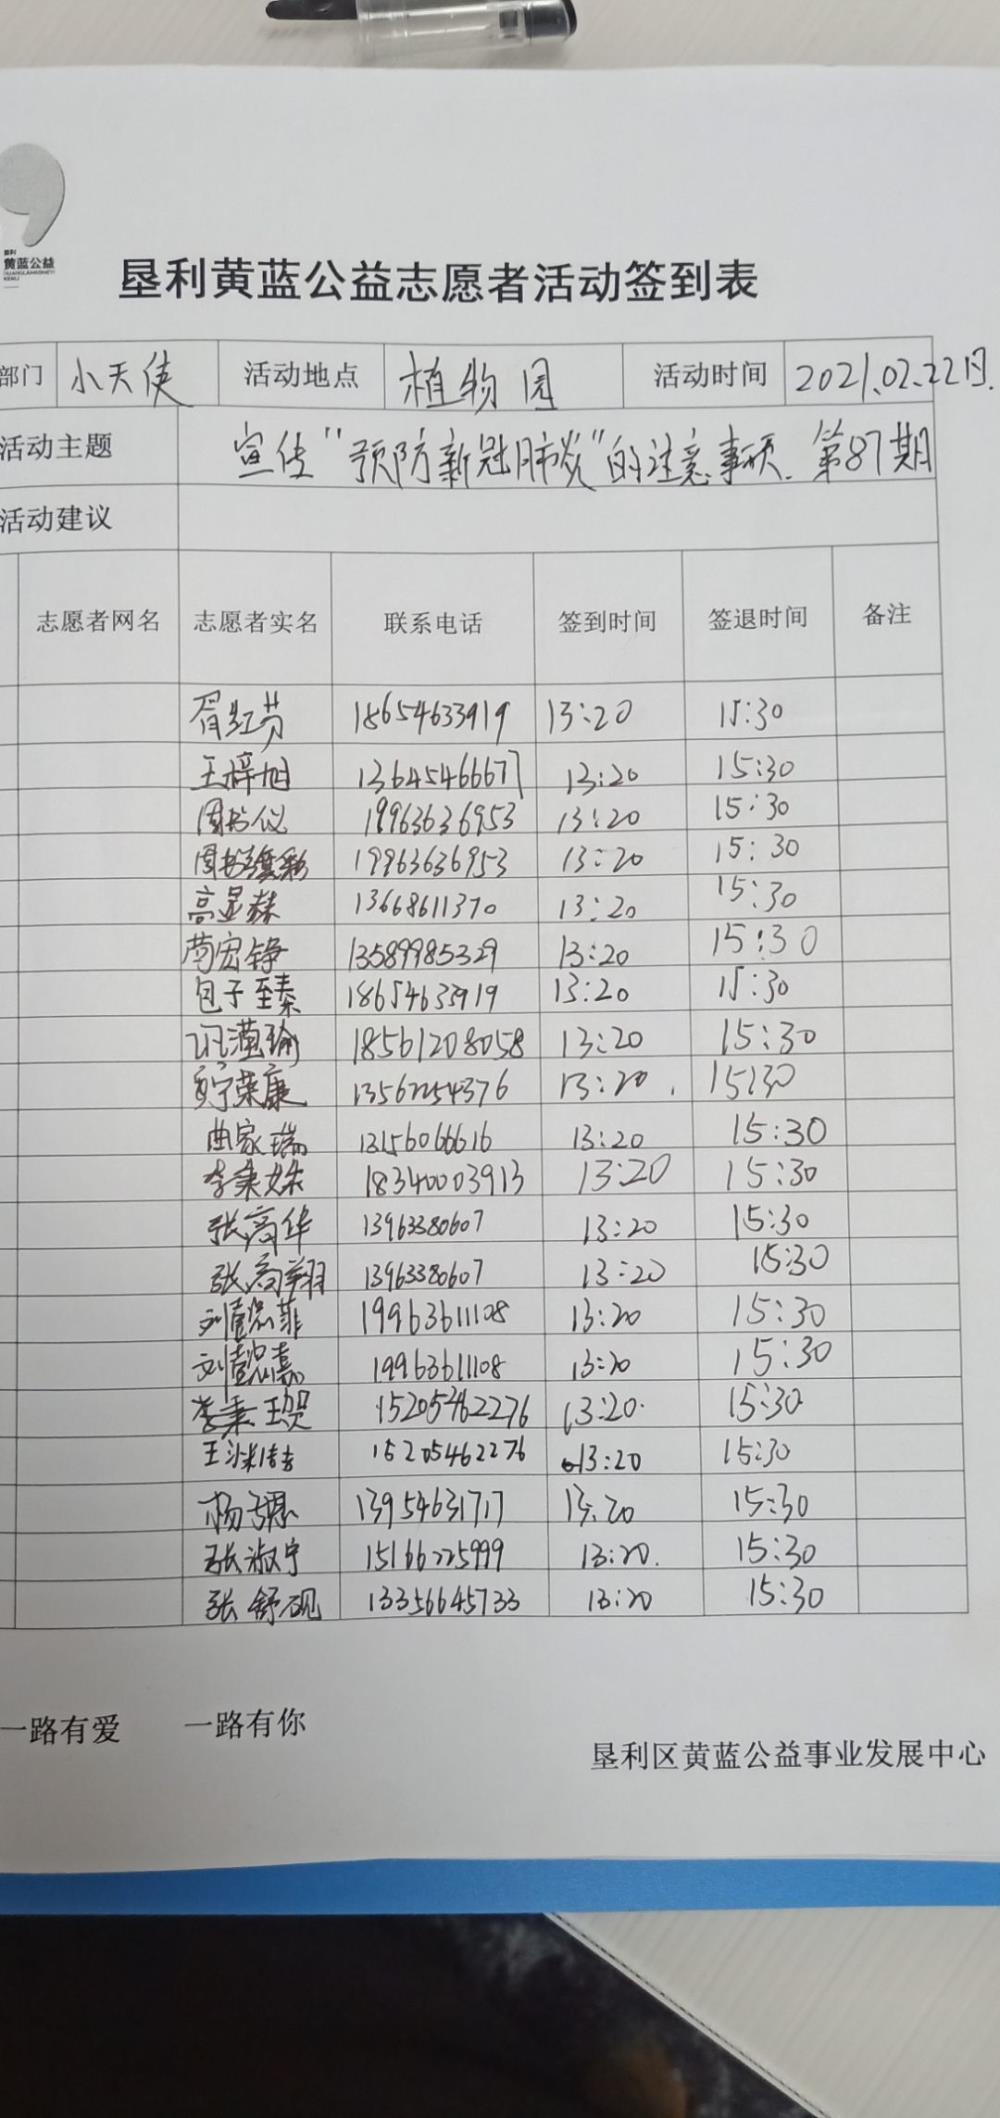 垦利
黄蓝公益
垦利黄蓝公益志愿者活动签到表
部门 小天使 活动地点 植物园 活动时间 2021.02.22日.
活动主题 宣传“预防新冠肺炎”的注意事项. 第87期
活动建议
志愿者网名 志愿者实名 联系电话 签到时间 签退时间 备注
胥红芬 18654633919 13:20 15:30
王梓旭 13645466671 13:20 15:30
周书仪 19963636953 13:20 15:30
周书 19963636953 13:20 15:30
高显赫 13668611370 13:20 15:30
苟宏铮 13589985329 13:20 15:30
包子至臻 18654633919 13:20 15:30
瑜 18561208058 13:20 15:30
荣康 13562254376 13:20 15:30
曲家瑞 13156066616 13:20 15:30
李秉姝 18340003913 13:20 15:30
张高华 13963380607 13:20 15:30
张高翔 13963380607 13:20 15:30
刘懿菲 19963611108 13:20 15:30
刘懿嘉 19963611108 13:20 15:30
李秉 15205462276 13:20 15:30
王 15205462276 13:20 15:30
杨 13954631717 13:20 15:30
张淑宁 15166225999 13:20. 15:30
张舒砚 13356645733 13:20 15:30
一路有爱 一路有你
垦利区黄蓝公益事业发展中心